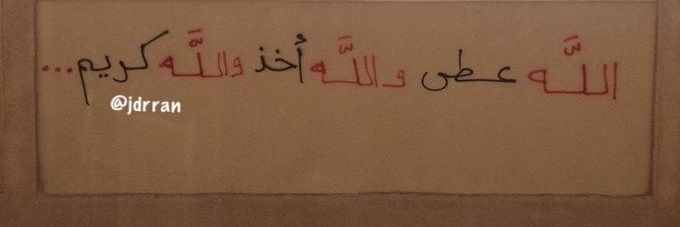 اللَّه عطى واللَّه أخذ واللَّه كريم...
@jdrran